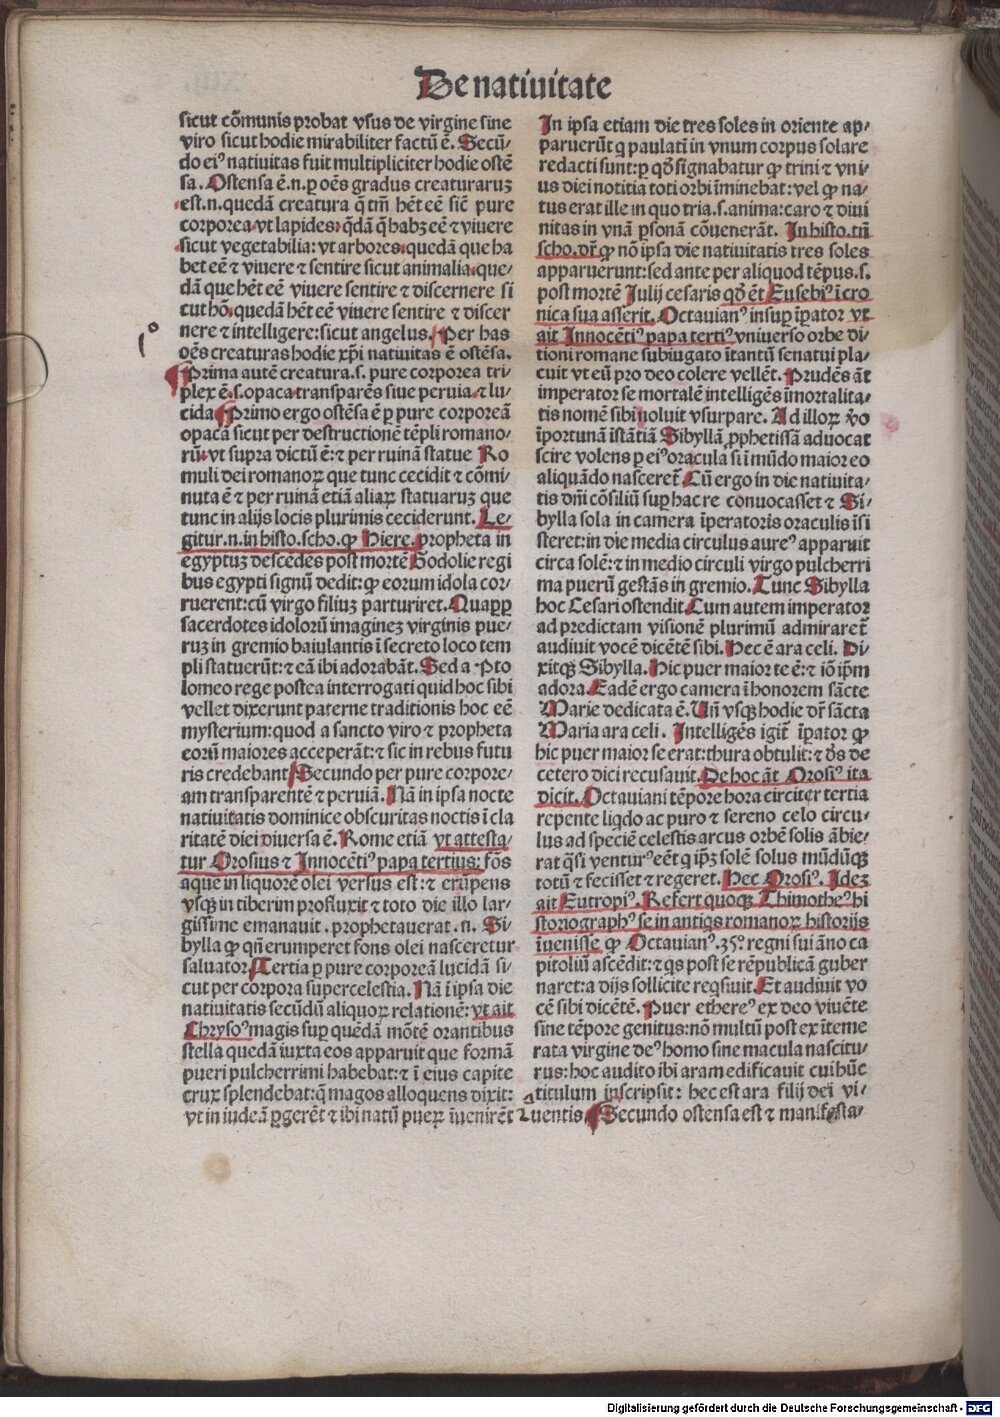 De natiuitate
sicut cōmunis probat vsus de virgine sine
viro sicut hodie mirabiliter factū ē. Secū/
do eiꝰ natiuitas fuit multipliciter hodie ostē
sa. Ostensa ē.n. ꝑ oēs gradus creaturaruꝫ
est.n. quedā creatura q̄ tm̄ hēt eē sic̄ pure
corporea vt lapides: q̄dā q̄ habꝫ eē ⁊ viuere
sicut vegetabilia: vt arbores. quedā que ha
bet eē ⁊ viuere ⁊ sentire sicut animalia. que/
dā que hēt eē viuere sentire ⁊ discernere si
cut hō. quedā hēt eē viuere sentire ⁊ discer
nere ⁊ intelligere: sicut angelus. Per has
oēs creaturas hodie xp̄i natiuitas ē ostēsa.
Prima autē creatura .s. pure corporea tri/
plex ē .s. opaca transparēs siue peruia. ⁊ lu/
cida Primo ergo ostēsa ē ꝑ pure corporeā
opacā sicut per destructionē tēpli romano/
rū. vt supra dictū ē: ⁊ per ruinā statue Ro
muli dei romanoꝝ que tunc cecidit ⁊ cōmi/
nuta ē ⁊ per ruinā etiā aliaꝝ statuaruꝫ que
tunc in alijs locis plurimis ceciderunt. Le/
gitur .n. in histo. scho. ꝙ Hiere. propheta in
egyptuꝫ descēdēs post mortē Godolie regi
bus egypti signū dedit: ꝙ eorum idola cor/
ruerent: cū virgo filiuꝫ parturiret. Quaꝓꝑ
sacerdotes idolorū imagineꝫ virginis pue/
ruꝫ in gremio baiulantis ī secreto loco tem
pli statuerūt: ⁊ eā ibi adorabāt. Sed a Pto
lomeo rege postea interrogati quid hoc sibi
vellet dixerunt paterne traditionis hoc eē
mysterium: quod a sancto viro ⁊ propheta
eorū maiores acceperāt: ⁊ sic in rebus futu
ris credebant Secundo per pure corpore/
am transparentē ⁊ peruiā. Nā in ipsa nocte
natiuitatis dominice obscuritas noctis ī cla
ritatē diei diuersa ē. Rome etiā vt attesta/
tur Orosius ⁊ Innocētiꝰ papa tertius: fōs
aque in liquorē olei versus est: ⁊ erūpens
vsqꝫ in tiberim profluxit ⁊ toto die illo lar/
gissime emanauit. prophetauerat .n. Si/
bylla ꝙ qn̄ erumperet fons olei nasceretur
saluator. Tertia ꝑ pure corporeā lucidā si/
cut per corpora supercelestia. Nā ī ipsa die
natiuitatis secūdū aliquoꝝ relationē: vt ait
Chrysoꝰ magis suꝑ quēdā mōtē orantibus
stella quedā iuxta eos apparuit que formā
pueri pulcherrimi habebat: ⁊ ī eius capite
crux splendebat: q̄ magos alloquens dixit:
vt in iudeā ꝑgerēt ⁊ ibi natū pueꝝ īuenirēt
In ipsa etiam die tres soles in oriente ap/
paruerūt q paulati in vnum corpus solare
redacti sunt: ꝑ qd̄ signabatur ꝙ trini ⁊ vni/
us diei notitia toti orbi īminebat: vel ꝙ na/
tus erat ille in quo tria .s. anima: caro ⁊ diui
nitas in vnā ꝑsonā cōuenerāt. In histo. tn̄
scho. dr̄ ꝙ nō ipsa die natiuitatis tres soles
apparuerunt: sed ante per aliquod tēpus .s.
post mortē Julij cesaris qd̄ ēt Eusebiꝰ ī cro
nica sua asserit. Octauianꝰ insuꝑ īpator vt
ait Innocētiꝰ papa tertiꝰ vniuerso orbe di/
tioni romane subiugato ītantū senatui pla/
cuit vt eū pro deo colere vellēt. Prudēs āt
imperator se mortalē intelligēs īmortalita/
tis nomē sibi noluit vsurpare. Ad illoꝝ v̄o
īportunā īstātiā Sibyllā ꝓphetissā aduocat
scire volens ꝑ eiꝰ oracula si ī mūdo maior eo
aliquādo nascereť Cū ergo in die natiuita/
tis dn̄i cōsiliū suꝑ hac re conuocasset ⁊ Si/
bylla sola in camera īperatoris oraculis īsi
steret: in die media circulus aureꝰ apparuit
circa solē: ⁊ in medio circuli virgo pulcherri
ma puerū gestās in gremio. Tunc Sibylla
hoc Cesari ostendit Cum autem imperator
ad predictam visionē plurimū admirareť
audiuit vocē dicētē sibi. Hec ē ara celi. Di/
xitqꝫ Sibylla. Hic puer maior te ē: ⁊ iō ip̄m
adora. Eadē ergo camera ī honorem sācte
Marie dedicata ē. Uñ vsqꝫ hodie dr̄ sācta
Maria ara celi. Intelligēs igiť īpator ꝙ
hic puer maior se erat: thura obtulit: ⁊ dꝰs de
cetero dici recusauit. De hoc āt Orosiꝰ ita
dicit. Octauiani tēpore hora circiter tertia
repente liqdo ac puro ⁊ sereno celo circu/
lus ad speciē celestis arcus orbē solis ābie/
rat q̄si venturꝰ eēt q ipꝫ solē solus mūdūqꝫ
totū ⁊ fecisset ⁊ regeret. Hec Orosiꝰ. Ideꝫ
ait Eutropiꝰ. Refert quoqꝫ Thimotheꝰ hi
storiographꝰ se in antiqs romanoꝝ historijs
īuenisse ꝙ Octauianꝰ .35°. regni sui āno ca
pitoliū ascēdit: ⁊ qs post se rēpublicā guber
naret: a dijs sollicite reqsiuit. Et audiuit vo
cē sibi dicētē. Puer ethereꝰ ex deo viuēte
sine tēpore genitus: nō multū post ex īteme
rata virgine deꝰ homo sine macula nascitu/
rus: hoc audito ibi aram edificauit cui hūc
titulum inscripsit: hec est ara filij dei vi/
uentis. Secundo ostensa est ⁊ manifesta/
Digitalisierung gefördert durch die Deutsche Forschungsgemeinschaft - DFG